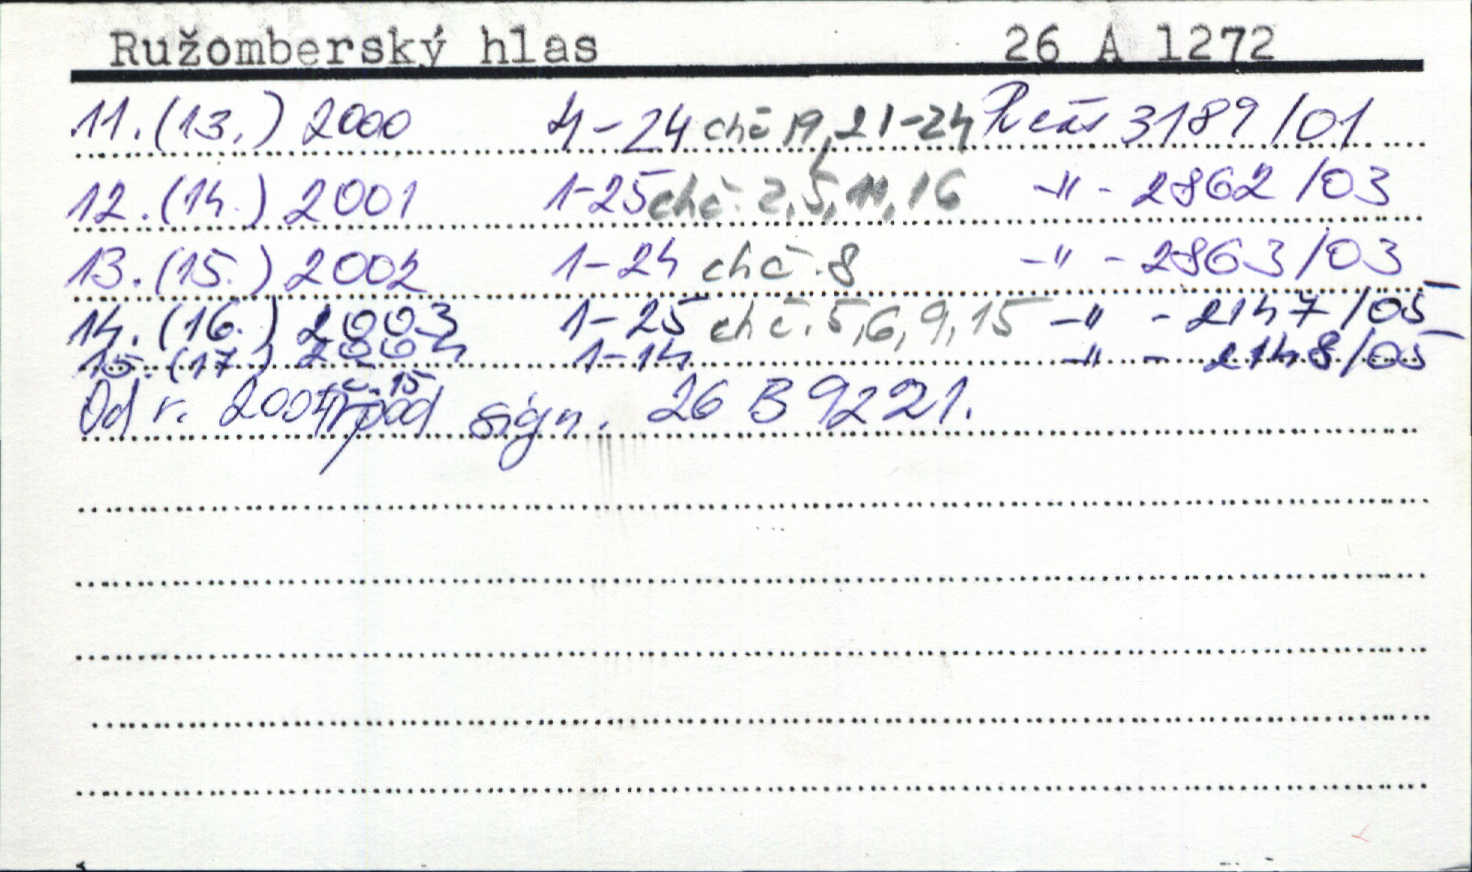 Ružomberský hlas 26 A 1272
11. (13.) 2000 1-24 chč 19, 21-24 Pr čas 3189/01
12. (14.) 2001 1-25 chč. 2, 5, 11, 16 -"- 2862/03
13. (15.) 2002 1-24 chč. 8 -"- 2863/03
14. (16.) 2003 1-25 chč. 5, 6, 9, 15 -"- 2147/05
15. (17.) 2004 1-14 -"- 2148/05
č. 15
Od r. 2004 pod sign. 26 B 9221.